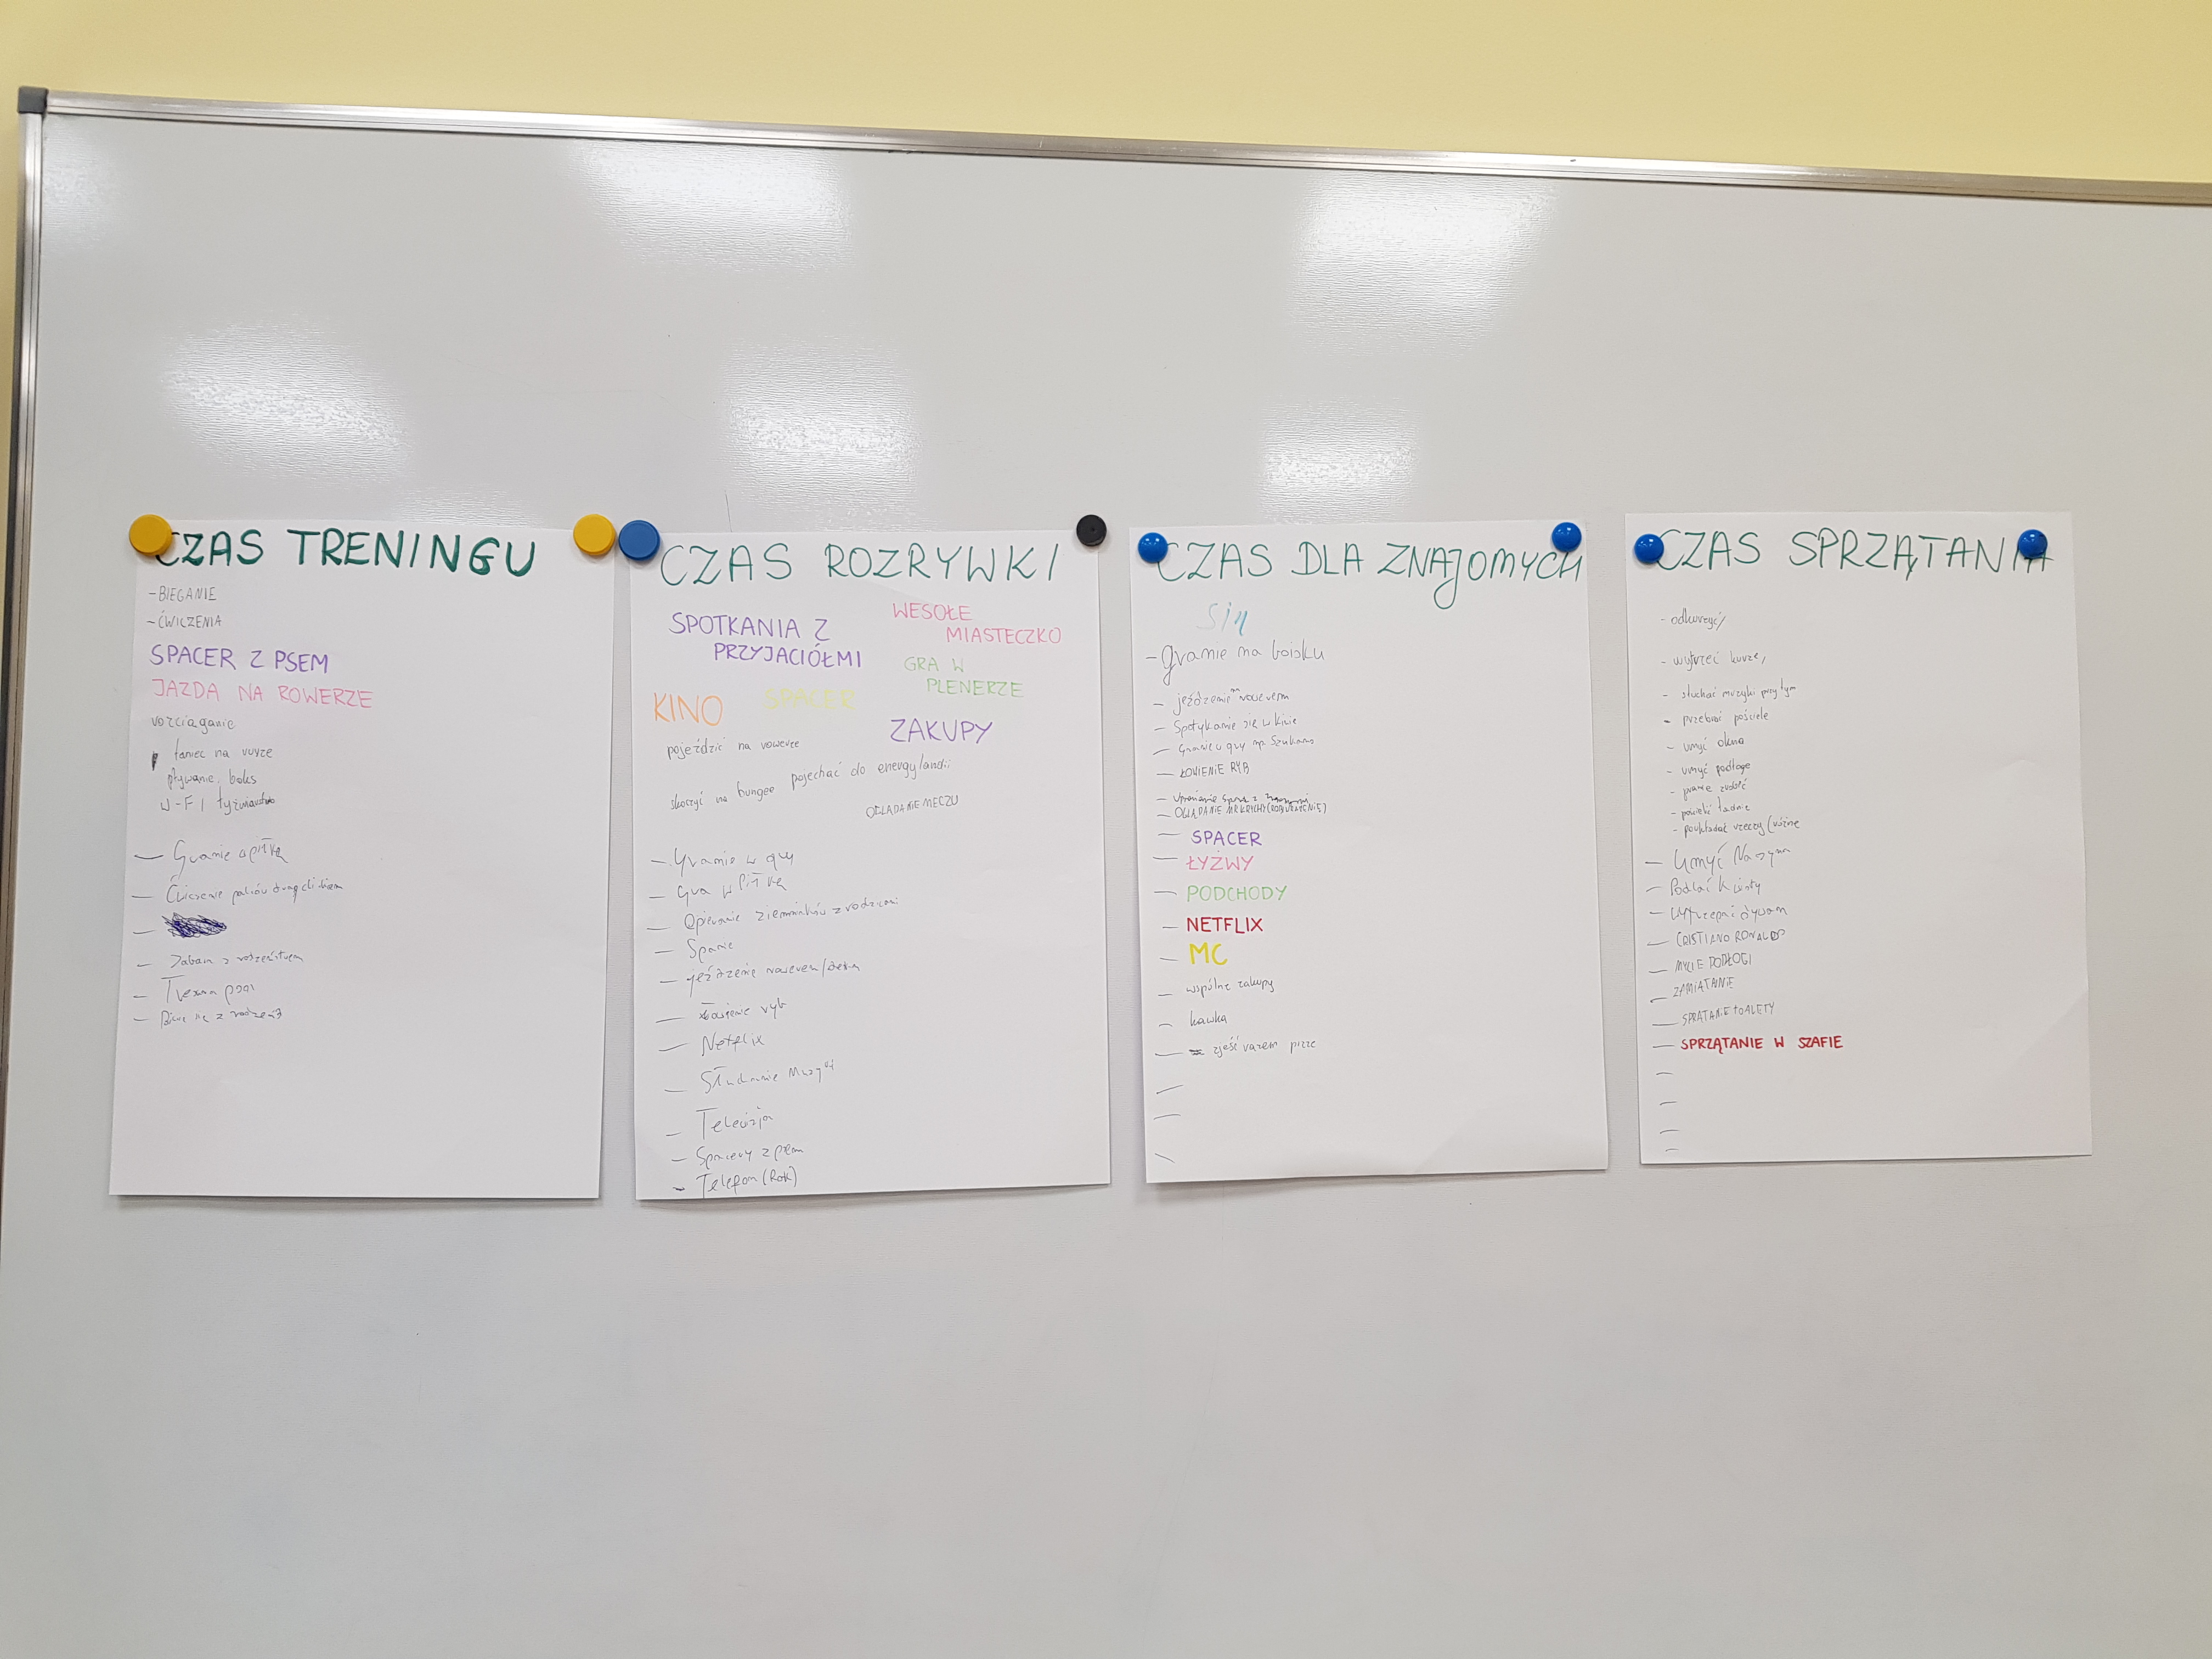 CZAS TRENINGU
-BIEGANIE
-ĆWICZENIA
SPACER Z PSEM
JAZDA NA ROWERZE
rozciąganie
taniec na rurze
pływanie, boks
W-F /
— Granie w piłkę
— Ćwiczenie palców
—
— Zabawa z rodzeństwem
— 
— z
CZAS ROZRYWKI
SPOTKANIA Z
PRZYJACIÓŁMI
WESOŁE
MIASTECZKO
GRA W
PLENERZE
KINO SPACER
ZAKUPY
pojeździć na rowerze
pojechać do energylandii
skoczyć na bungee
OGLĄDANIE MECZU
— Granie w gry
— Gra w piłkę
— ziemniaków z rodzicami
— Spanie
— jeżdżenie rowerem/
— Łowienie ryb
— Netflix
— Słuchanie Muzyki
— Telewizja
— Spacery z psem
— Telefon (Rok)
CZAS DLA ZNAJOMYCH
- granie na boisku
- jeżdżenie rowerem
- Spotykanie się w kinie
- Granie w gry np.
— ŁOWIENIE RYB
— z
— OGLĄDANIE
— SPACER
— ŁYŻWY
— PODCHODY
— NETFLIX
— MC
— wspólne zakupy
— kawka
— zjeść razem pizze
CZAS SPRZĄTANIA
- odkurzyć/
- wytrzeć kurze,
- słuchać muzyki przy tym
- przebrać pościele
- umyć okna
- umyć podłogę
- pranie zrobić
- pościelić ładnie
- poukładać rzeczy (różne
— Umyć Naczynia
— Podlać kwiaty
— Wytrzepać dywan
— CRISTIANO RONALDO
— MYCIE PODŁOGI
— ZAMIATANIE
— SPRĄTANIE TOALETY
— SPRZĄTANIE W SZAFIE